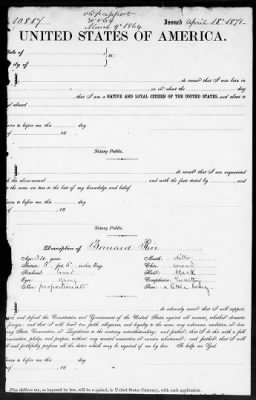 10817
old passport
Issued April 18" 1871
30064
March 9" 1864
UNITED STATES OF AMERICA.
State of
ss:
City of
do swear that I was born in
on or about the
day
that I am a NATIVE AND LOYAL CITIZEN OF THE UNITED STATES, and about
abroad
Sworn to before me, this
day
of
18
Notary Public.
do swear that I am acquainted
with the above-named
and with the facts stated by
and
the same are true to the best of my knowledge and belief
Sworn to before me, this
day
of
18
Notary Public.
Description of Bernard
Age: 30 years
Mouth:
Stature: 5 feet
inches Eng.
Chin: round
Forehead: broad
Hair: black
Eyes: gray
Complexion: healthy
Nose: proportionate
Face: a little
do solemnly swear that I will support,
and defend the Constitution and Government of the United States against all enemies, whether domestic
or foreign; and that I will bear true faith, allegiance, and loyalty to the same, any ordinance, resolution, or law
of any State, Convention, or Legislature to the contrary notwithstanding; and further, that I do this with a full
determination, pledge, and purpose, without any mental reservation or evasion whatsoever; and further, that I will
well and faithfully perform all the duties which may be required of me by law. So help me God.
Sworn to before me, this
day
of
18
Notary Public.
Five dollars tax, as imposed by law, will be required, in United States Currency, with each application.